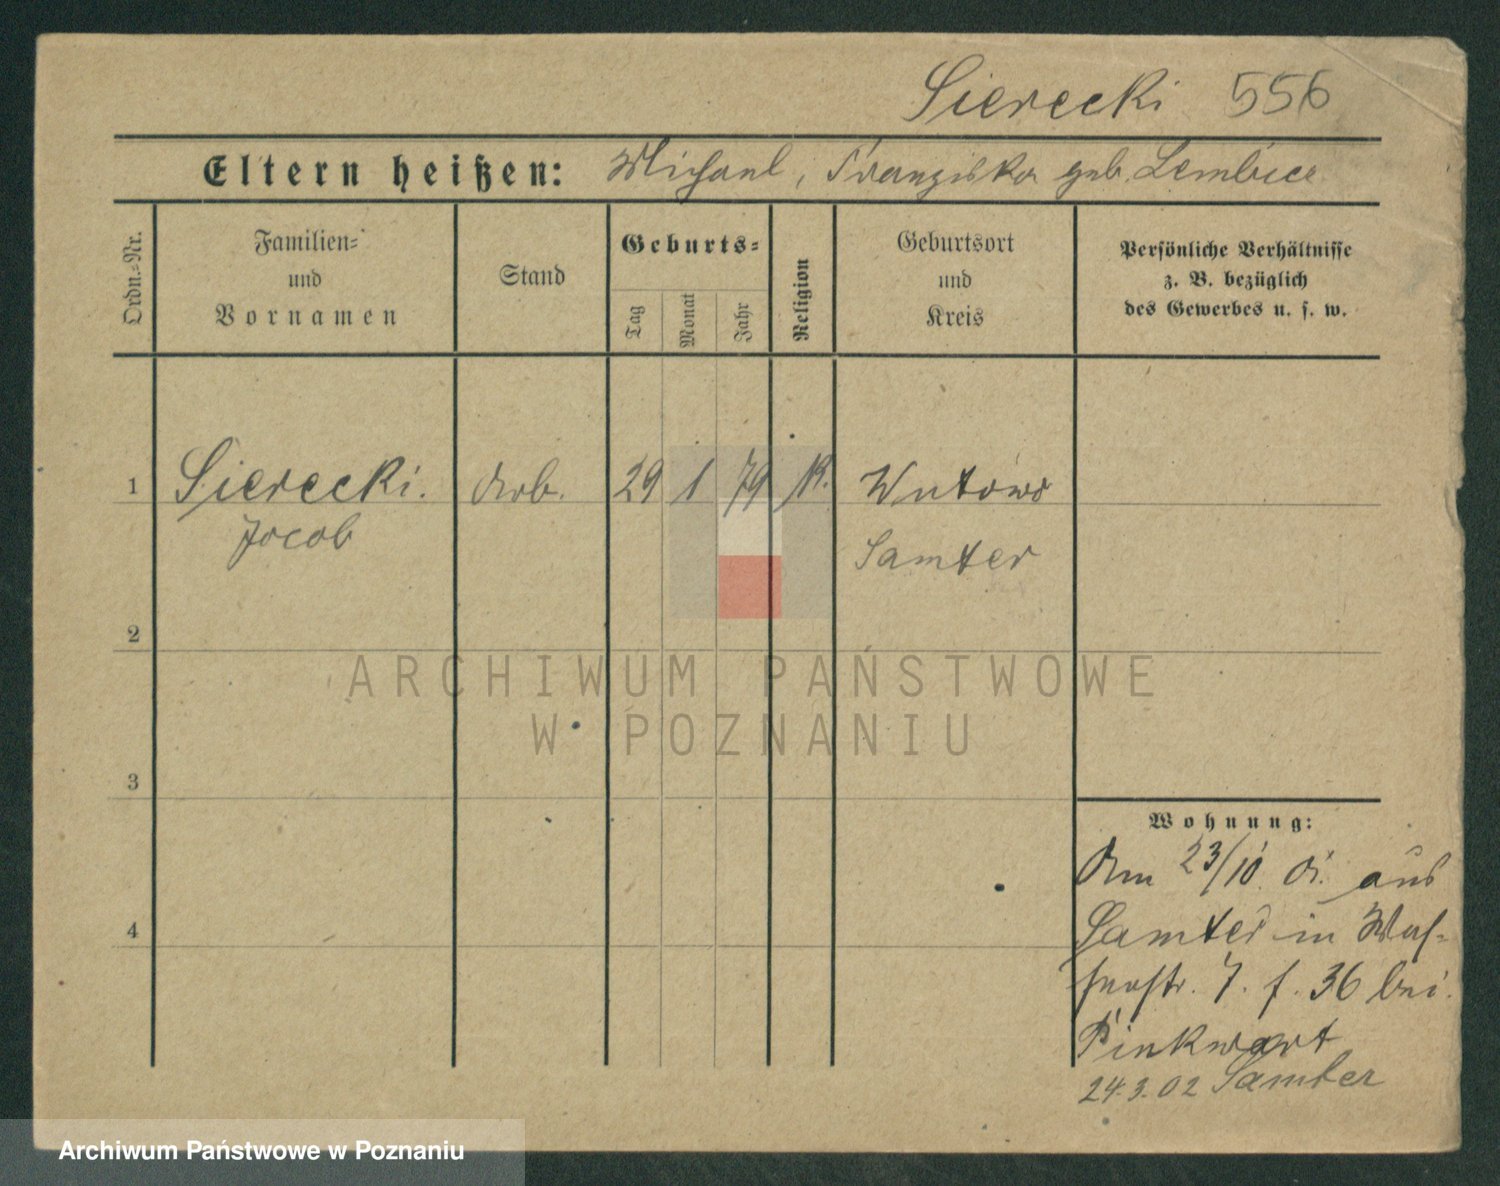 Sierecki 556
Eltern heißen: Michael, Franziska geb. Lembicz
Ordn.=Nr.
Familien=
und
Vornamen
Stand
Geburts=
Tag
Monat
Jahr
Religion
Geburtsort
und
Kreis
Persönliche Verhältnisse
z. B. bezüglich
des Gewerbes u. s. w.
1 Sierecki. Arb. 29 1 79 K.
Jacob Samter
2
ARCHIWUM PAŃSTWOWE
W POZNANIU
3
Wohnung:
Am 23/10. 01. aus
4
Samter in Was-
serstr. 7. f. 36 bei
Pinkwart
24.3.02 Samter
Archiwum Państwowe w Poznaniu